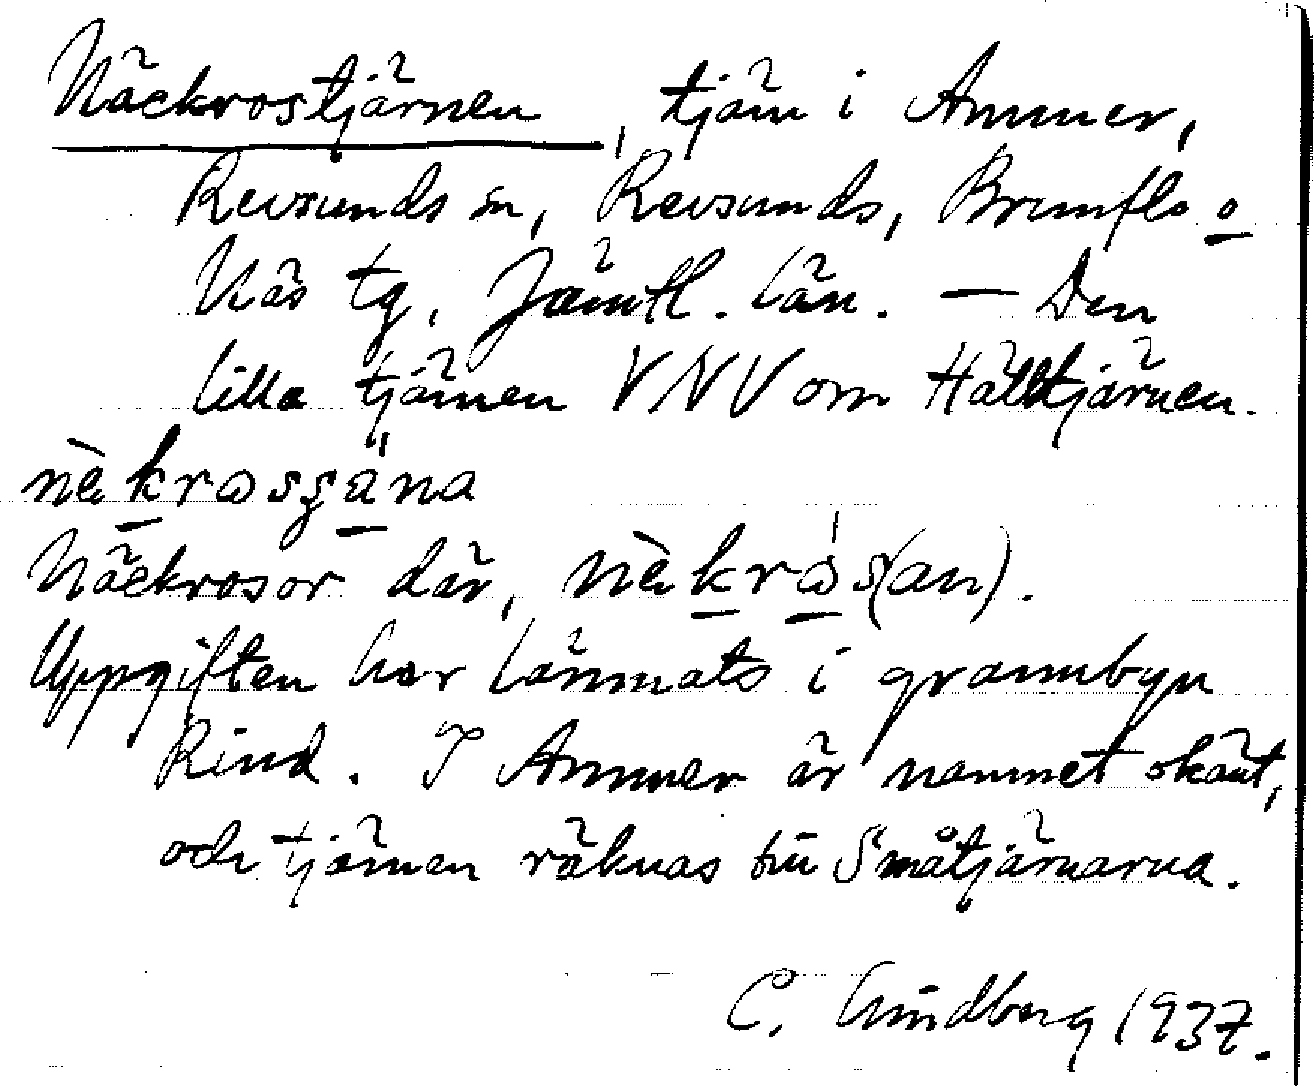 Näckrostjärnen, tjärn i Ammer,
Revsunds sn, Revsunds, Brunflo o
Näs tg, Jämtl. län. — Den
lilla tjärnen VNV om Hälltjärnen.
nèkrosʒäna
Näckrosor där, nèkròs(an).
Uppgiften har lämnats i grannbyn
Rind. I Ammer är namnet okänt,
och tjärnen räknas till Småtjärnarna.
C. Lindberg 1937.